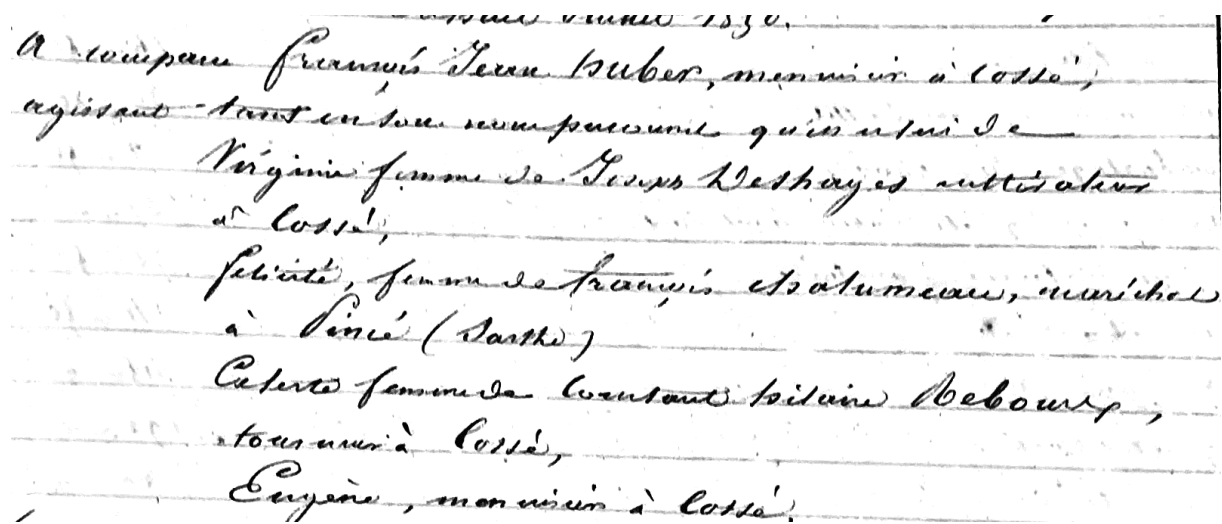 1850.
A comparu François Jean huber, menuisier à Cossé,
agissant tant en son nom personnel qu'en celui de
Virginie femme de Deshayes cultivateur
à Cossé,
felicité, femme de françois Chalumeau, maréchal
à Pincé (Sarthe)
Celeste femme de Constant hilaire Rebours,
tourneur à Cossé,
Eugène, menuisier à Cossé,